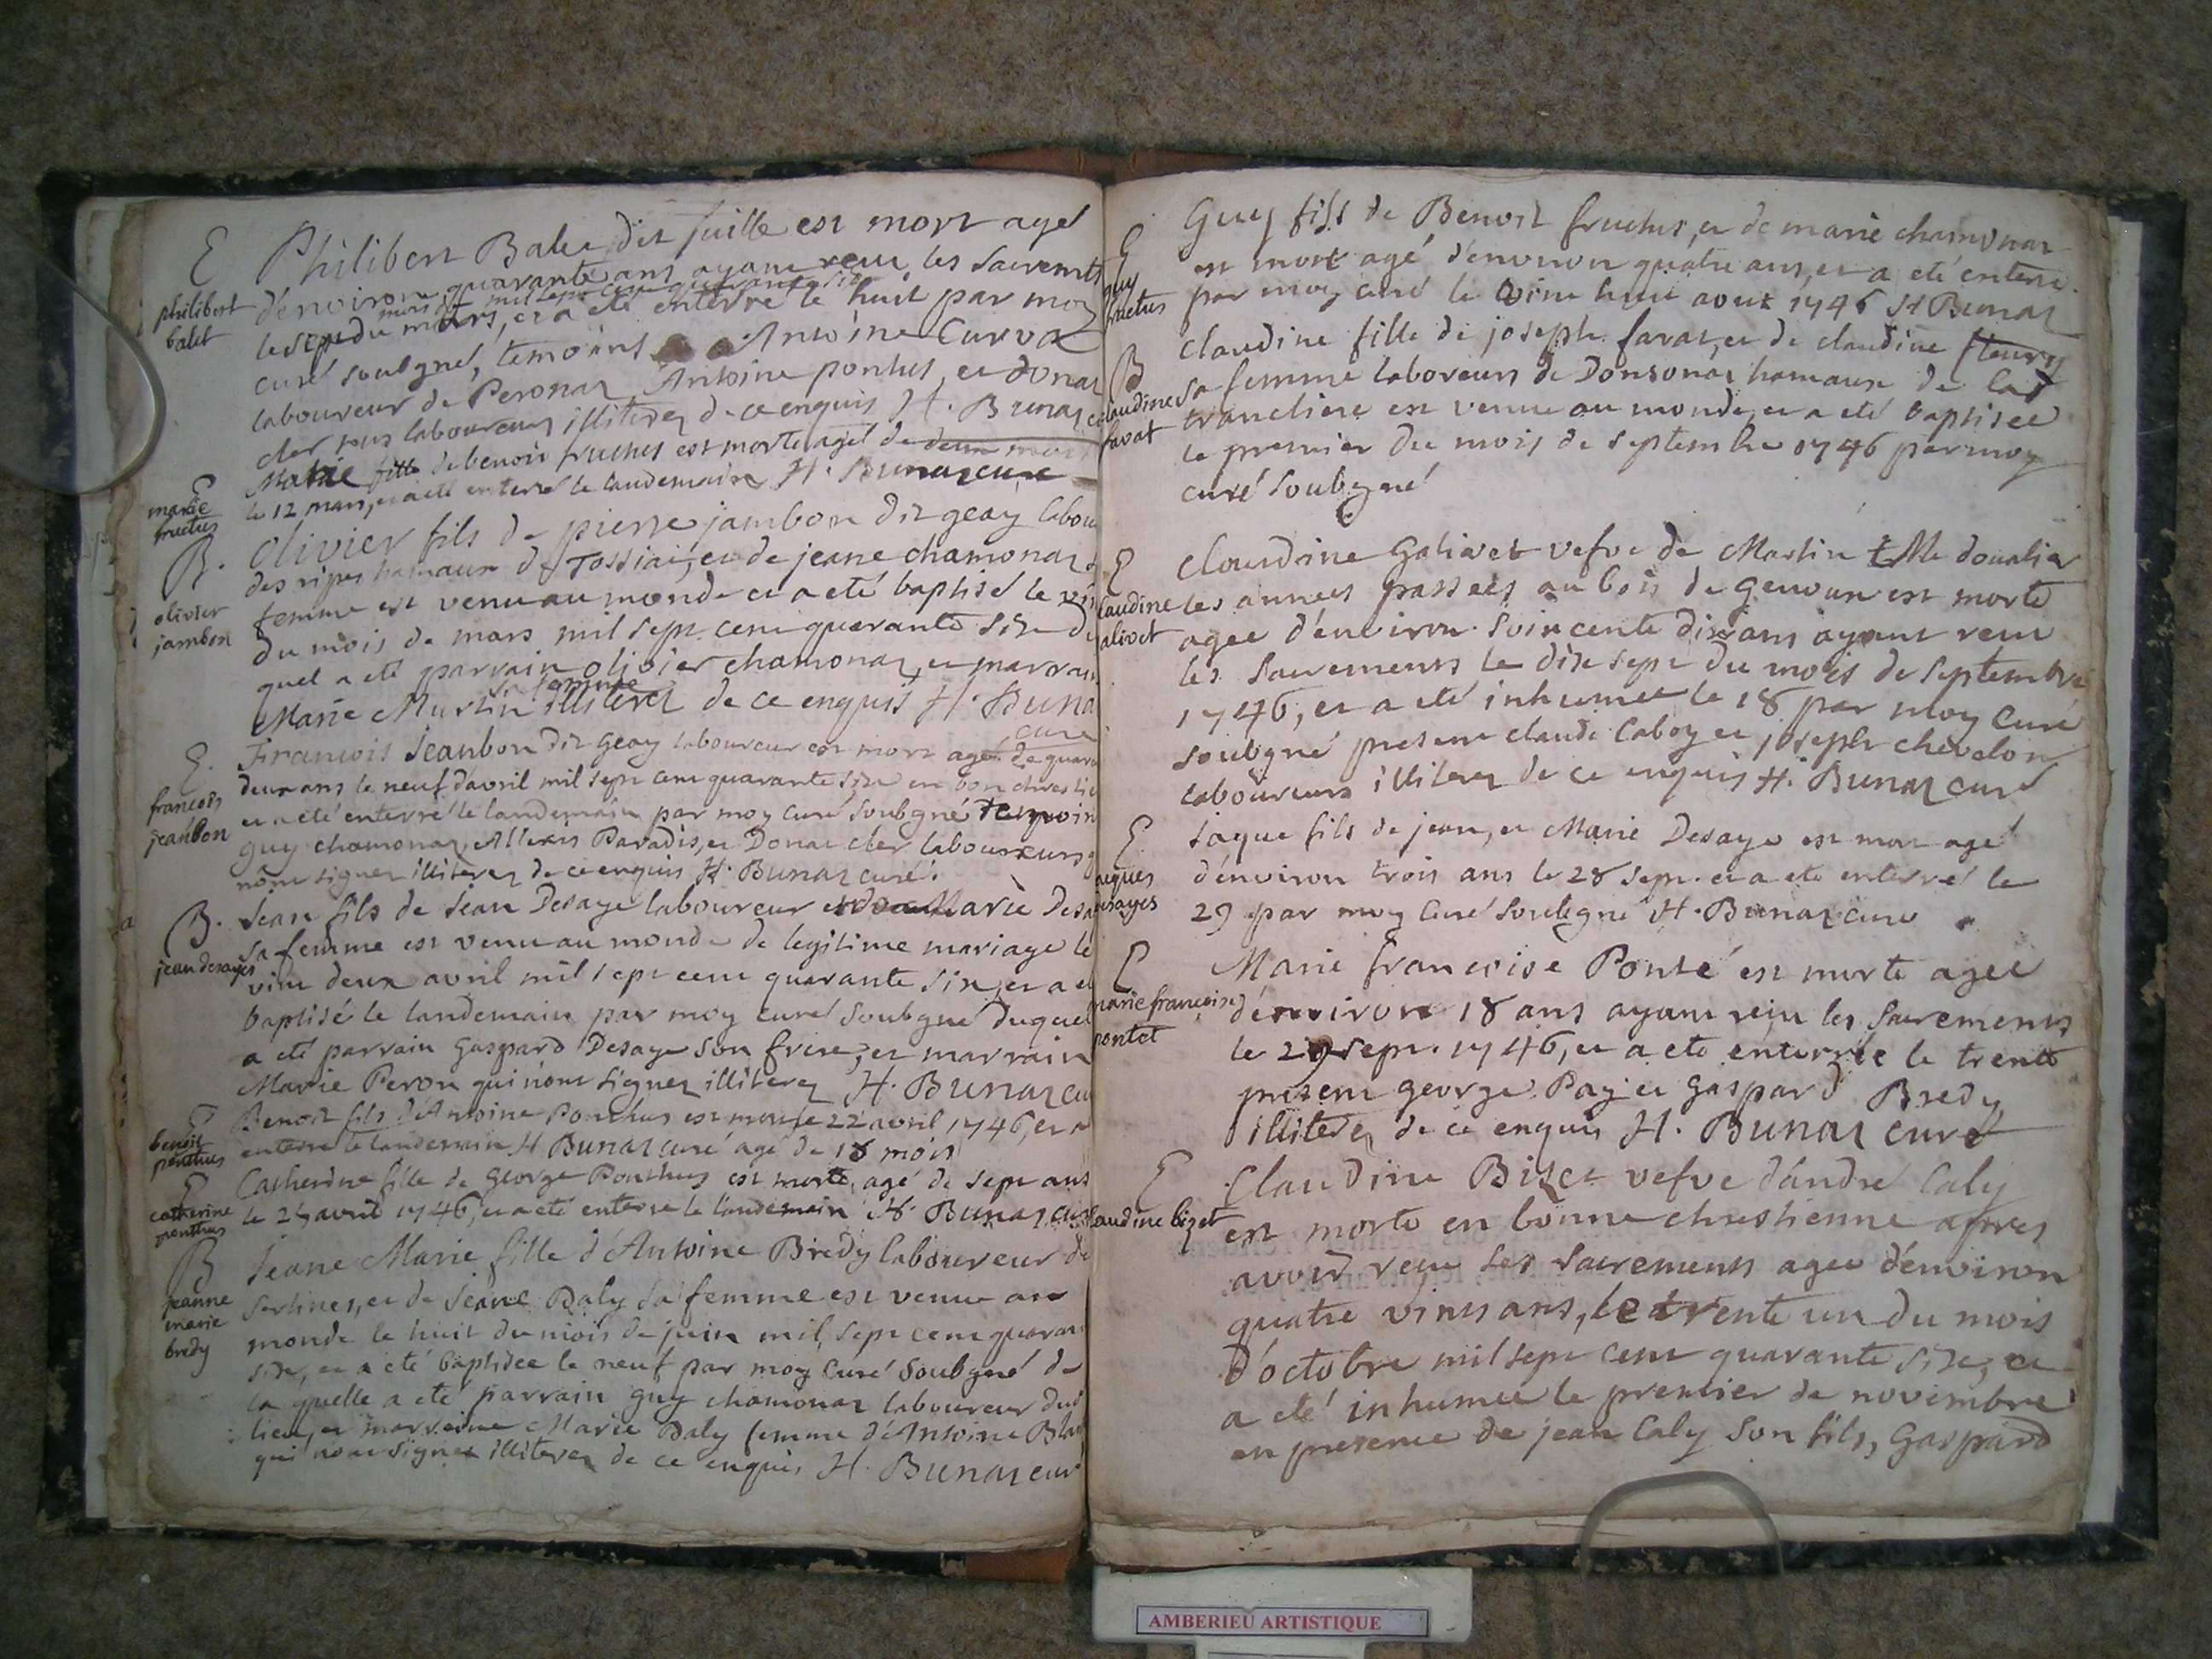 E
philibert
balet
Philibert Balet dit juille est mort agé
d'environ quarante ans ayant reçu les sacremts
mil sept cent quarante six
le sept du mars, et a eté enterré le huit par moy
curé soubgné, temoins Antoine Curvat
laboureur de Peronaz Antoine ponthus, et donat
cler tous laboureurs illiterez de ce enquis H. Bunaz
E
marie
fructus
Marie fille de benoit fructus est morte agé de deux mois
le 12 mars, et a eté enterré le landemain H. Bunaz curé
B.
olivier
jambon
Olivier fils de pierre jambon dit geay labou
des ripes hamaux de Tossiat, et de jeane chamonaz
femme est venu au monde et a eté baptisé le
du mois de mars mil sept cent quarante six
quel a eté parrain olivier chamonaz, et marrain
sa femme
Marie Martin illiterez de ce enquis H. Buna
curé
E.
francois
jeanbon
Francois Jeanbon dit geay laboureur est mort agé de quara
deux ans le neuf d'avril mil sept cent quarante six en bon chresti
et a eté enterré le landemain par moy curé soubgné temoin
guy chamonaz, Allexis Paradis, et Donat cler laboureurs
n'ont signez illiterez de ce enquis H. Bunaz curé.
B.
jean desayes
Jean fils de Jean Desaye laboureur et de Marie Desa
sa femme est venu au monde de legitime mariage le
vint deux avril mil sept cent quarante six, et a et
baptisé le landemain par moy curé soubgné duquel
a eté parrain Gaspard Desaye son frere, et marrain
Marie Peron qui n'ont signez illiterez H. Bunaz cu
E
benoit
ponthus
Benoit fils d'Antoine Ponthus est mort le 22 avril 1746, et a
enterré le landemain H Bunaz curé agé de 18 mois
E
catherine
ponthus
Catherine fille de George Ponthus est morte, agé de sept ans
le 24 avril 1746, et a eté enterré le landemain H. Bunaz curé
B
jeanne
marie
bredy
Jeane Marie fille d'Antoine Bredy laboureur de
Sertines, et de Jeane Daly sa femme est venue au
monde le huit du mois de juin mil sept cent quaran
six, et a eté baptisée le neuf par moy curé soubgné de
la quelle a eté parrain guy chamonaz laboureur dud
lieu, et marreine Marie Daly femme d'Antoine
qui n'ont signez illiterez de ce enquis H. Bunaz cur
E
guy
fructus
Guy fils de Benoit fructus, et de marie chamonaz
est mort agé d'environ quatre ans, et a eté enterré
par moy curé le vint huit aout 1746 H Bunaz
B
claudine
favat
claudine fille de joseph favat, et de claudine fleury
sa femme laboreurs de Donsonas hamaux de la
trancliere est venue au monde, et a eté baptisée
le premier du mois de septembre 1746 par moy
curé soubgné
E
claudine
galivet
Claudine Galivet vefve de Martin
les années passées au bois de genoux est morte
agee d'environ soixcente dix ans ayant receu
les sacrements le dix sept du mois de septembre
1746, et a eté inhumée le 18 par moy curé
soubgné present claude Caboy et joseph chevelon
laboureurs illiterez de ce enquis H. Bunaz curé
E.
jaques
desayes
Jaque fils de jean, et Marie Desaye est mort agé
d'environ trois ans le 28 sept. et a eté enterré le
29 par moy curé soubgné H. Bunaz curé
E
marie françoise
pontet
Marie francoise Ponté est morte agée
d'environ 18 ans ayant reçu les sacrements
le 29 sept. 1746, et a eté enterrée le trente
present george Pay et Gaspard Bredy
illiterez de ce enquis H. Bunaz curé
E
claudine bizet
Claudine Biset vefve d'andré Caly
est morte en bonne chrestienne apres
avoir receu les sacrements agée d'environ
quatre vints ans, le trente un du mois
d'octobre mil sept cent quarante six, et
a eté inhumée le premier de novembre
en presence de jean Caly son fils, Gaspard
AMBERIEU ARTISTIQUE